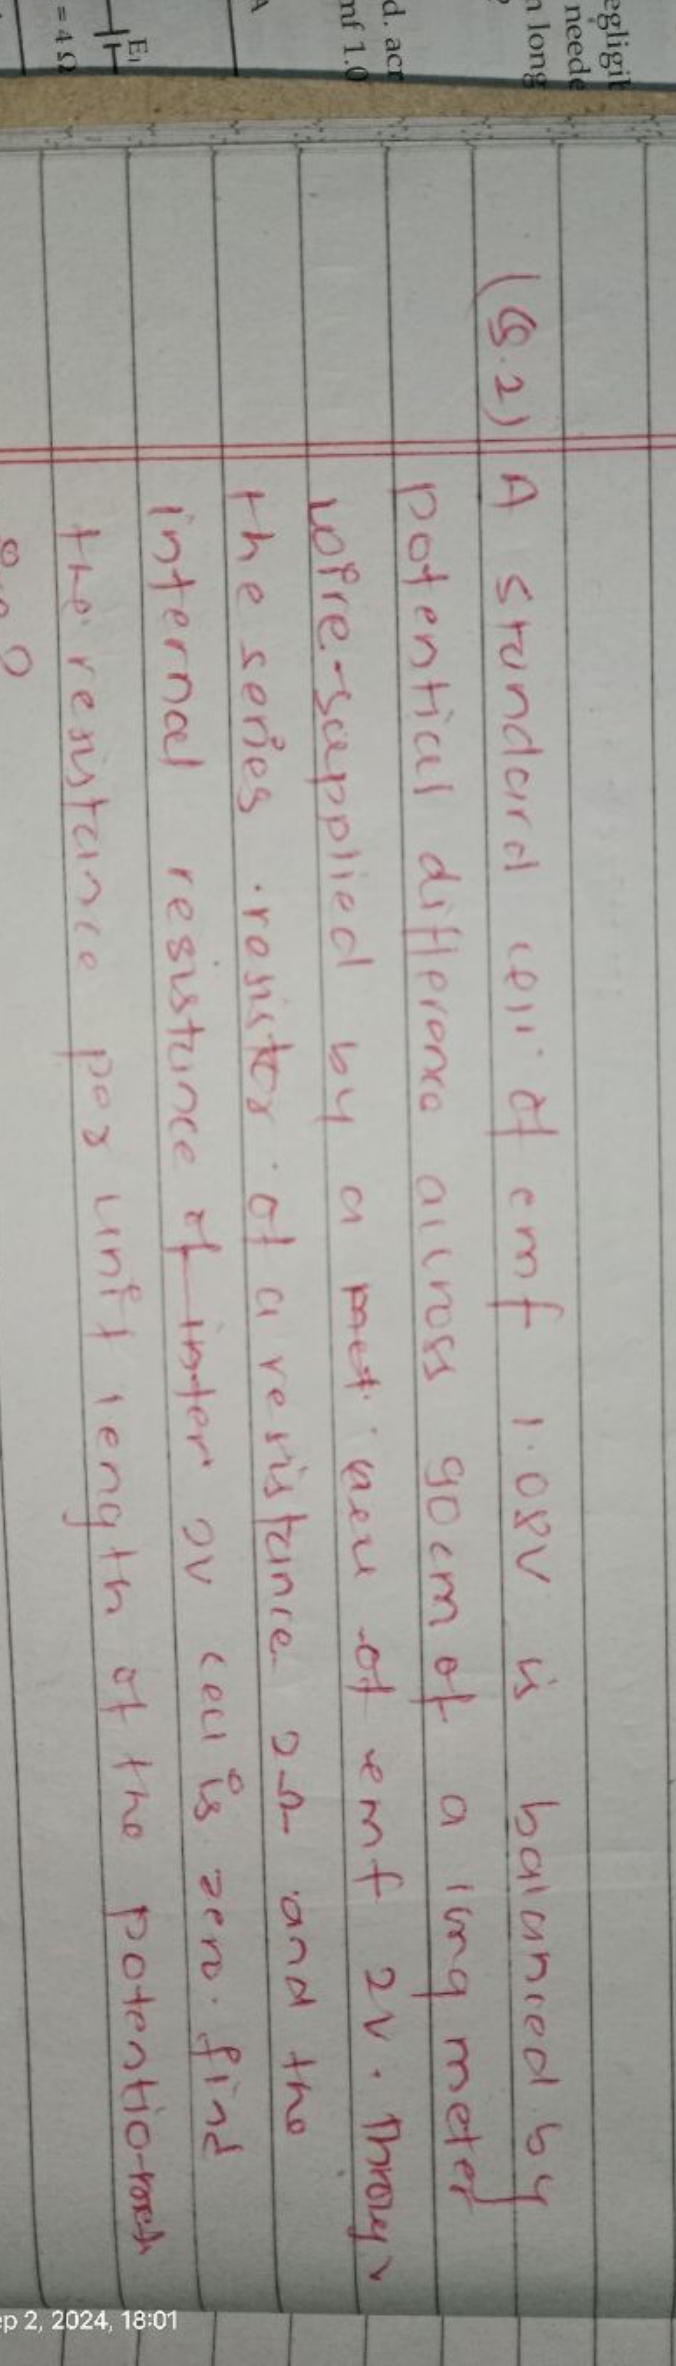 egligib
neede
n long
d. acr
mf 1.0
A
E₁
= 4 Ω
(Q.2) A standard cell of emf 1.08V is balanced by
potential difference accross 90cm of a long meter
wire-supplied by a cell of emf 2V. Through
the series resistor of a resistance 2Ω and the
internal resistance of 2V cell is zero. find
the resistance per unit length of the potentio-
Sep 2, 2024, 18:01